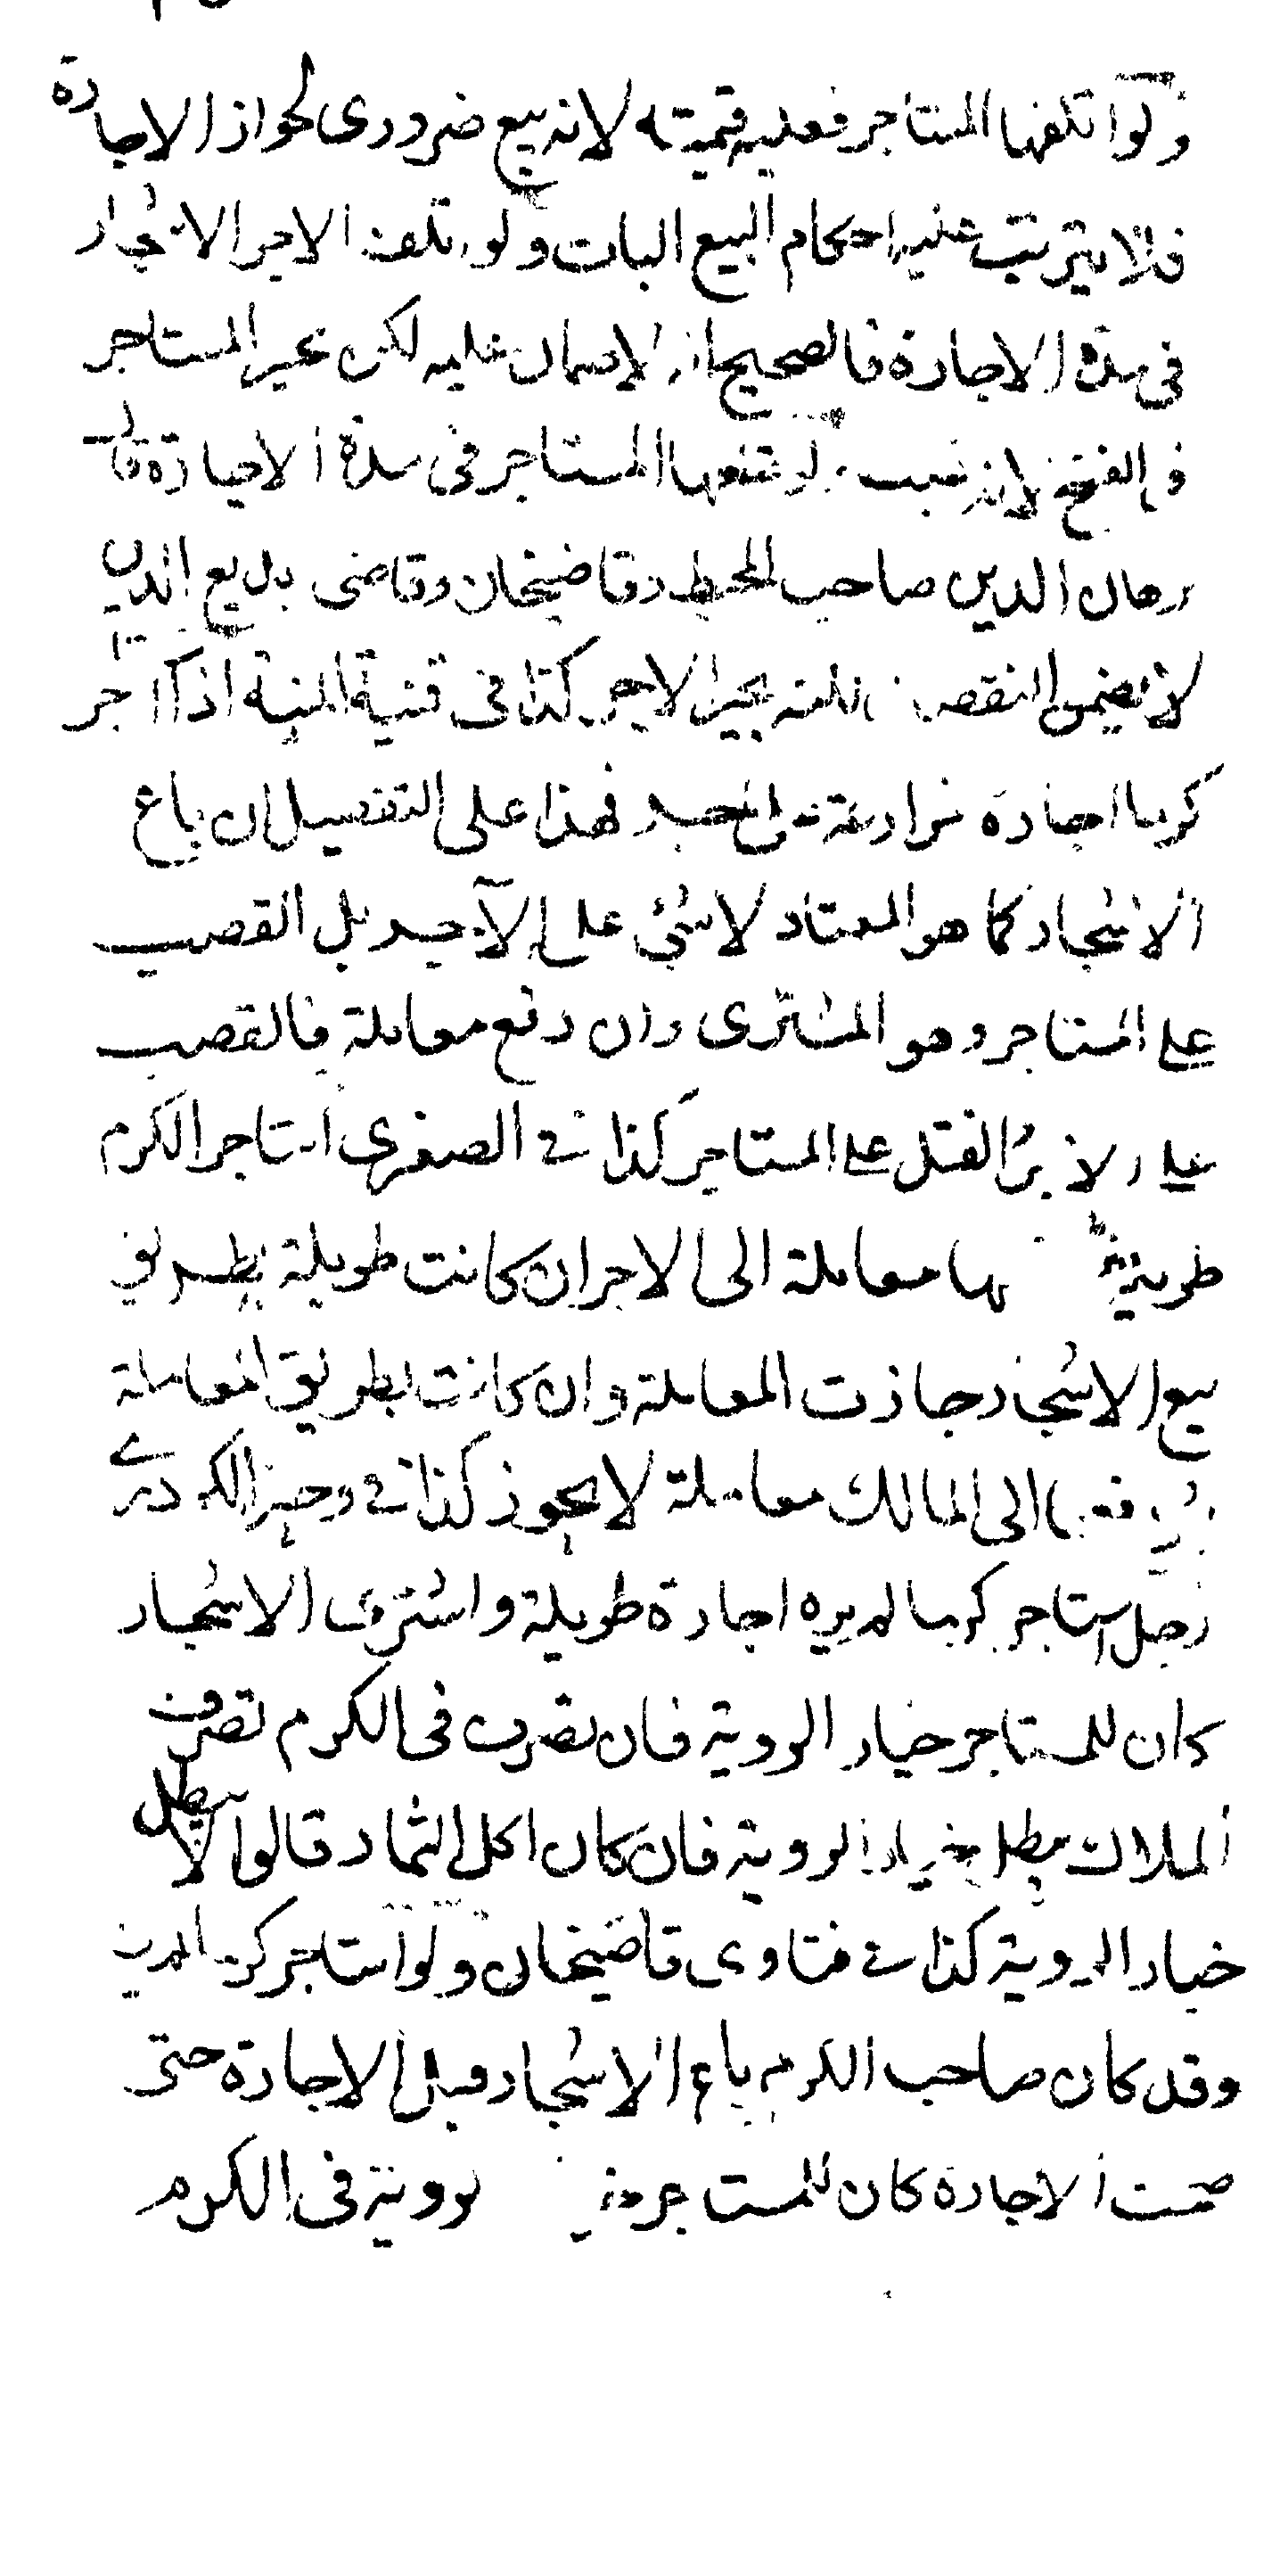 ولو اتلفها المستاجر فعليه قيمته لانه بيع ضرورى لجواز الاجارة
فلا يترتب عليه احكام البيع البات ولو اتلف الاجر الاشجار
فى مدة الاجارة فالصحيح انه لا ضمان عليه لكن يخير المستاجر
فى الفسخ لانه عيب ولو قطعها المستاجر فى مدة الاجارة قال
برهان الدين صاحب المحيط وقاضيخان وقاضى بديع الدين
لا يضمن النقصان لكنه يخير الاجر كذا فى قنية المنية اذا آجر
كرما اجارة فهذا على التفصيل ان باع
الاشجار كما هو المعتاد لا شئ على الآجر بل القصب
على المستاجر وهو المشترى وان دفع معاملة فالقصب
على الفتل على المستاجر كذا فى الصغرى استاجر الكرم
طويلة معاملة الى الاجر ان كانت طويلة بطريق
بيع الاشجار جازت المعاملة وان كانت بطريق المعاملة
الى المالك معاملة لا يجوز كذا فى وجيز الكردرى
رجل استاجر كرما لم يره اجارة طويلة واشترى الاشجار
كان للمستاجر خيار الروية فان تصرف فى الكرم تصرف
الملاك يبطل خيار الروية فان كان اكل الثمار قالوا لا يبطل
خيار الروية كذا فى فتاوى قاضيخان ولو استاجر كرما
وقد كان صاحب الكرم باع الاشجار قبل الاجارة حتى
صحت الاجارة كان للمستاجر روية فى الكرم